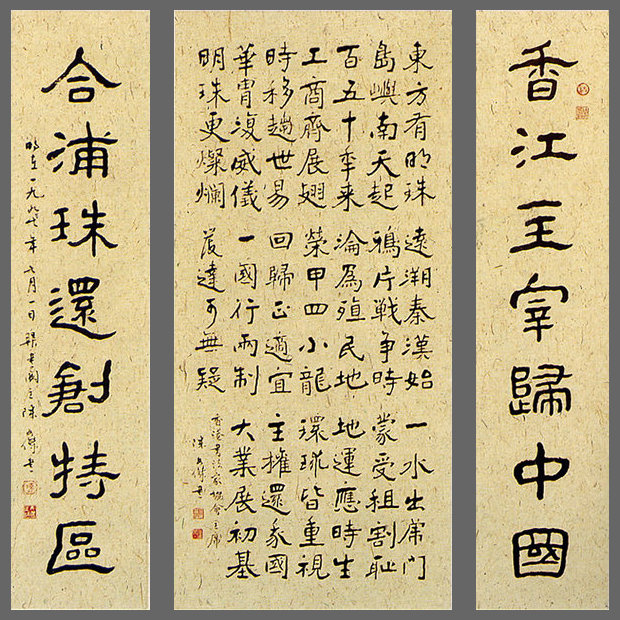 香江主宰歸中國
東方有明珠 遠溯秦漢始 一水出虎門
島嶼南天起 鴉片戰爭時 蒙受租割恥
百五十年来 淪為殖民地 地運應時生
工商齊展翅 榮甲四小龍 環球皆重視
時移趨世易 回歸正適宜 主權還我國
華胄復威儀 一國行兩制 大業展初基
明珠更燦爛 發達可無疑
香港書法家協會主席
陳文傑書
合浦珠還創特區
時在一九九七年七月一日 閣主陳文傑書